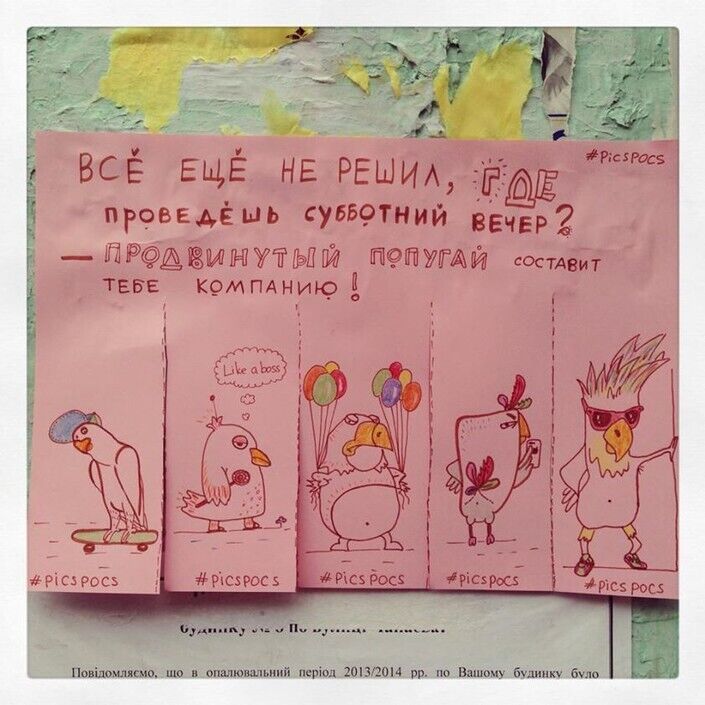 ВСЁ ЕЩЁ НЕ РЕШИЛ, ГДЕ
#PICSPOCS
ПРОВЕДЁШЬ СУББОТНИЙ ВЕЧЕР?
— ПРОДВИНУТЫЙ ПОПУГАЙ СОСТАВИТ
ТЕБЕ КОМПАНИЮ!
Like a boss
#PICSPOCS
#PICSPOCS
#PICSPOCS
#PICSPOCS
#PICSPOCS
Повідомляємо, що в опалювальний період 2013/2014 рр. по Вашому будинку було